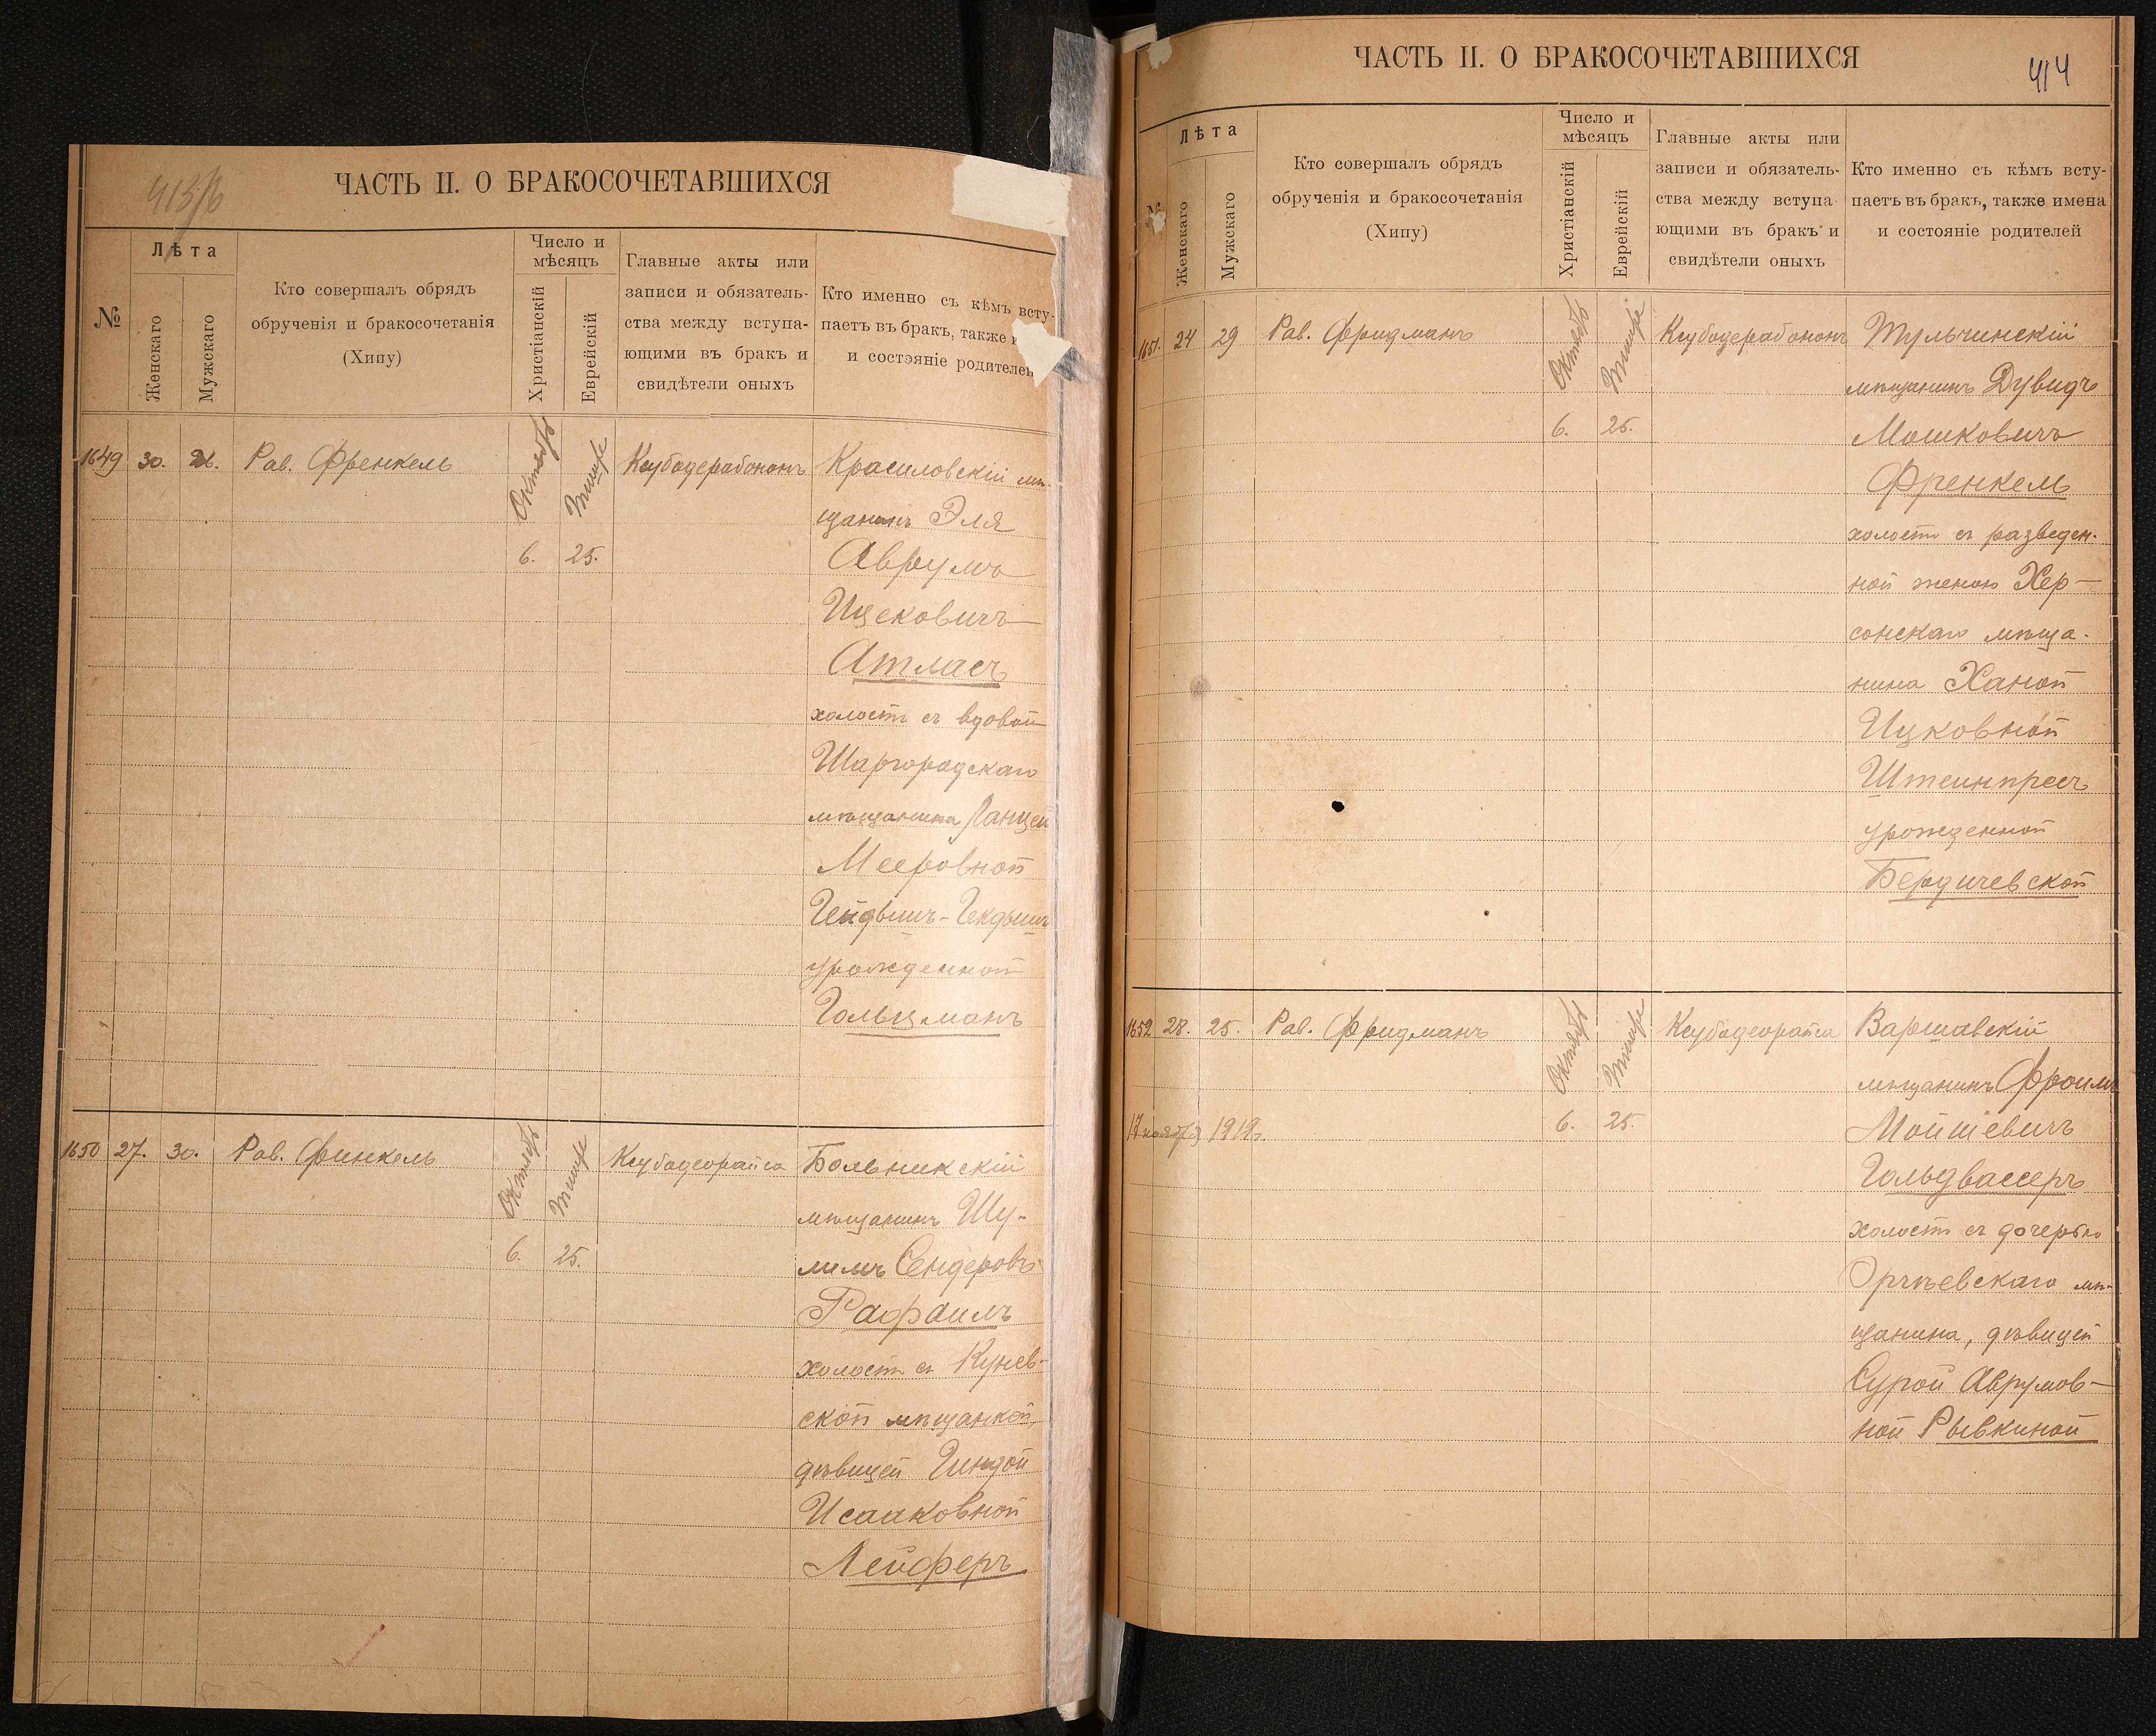 413/б
ЧАСТЬ II. О БРАКОСОЧЕТАВШИХСЯ
№
Лѣта
Женскаго
Мужскаго
Кто совершалъ обрядъ
обрученія и бракосочетанія
(Хипу)
Число и
мѣсяцъ
Христіанскій
Еврейскій
Главные акты или
записи и обязатель-
ства между вступа-
ющими въ бракъ и
свидѣтели оныхъ
Кто именно съ кѣмъ всту-
паетъ въ бракъ, также
и состояніе родителей
1649 30. 26. Рав. Френкель
Октябрь
Тишре
6. 25.
Ксубодерабононъ
Красиловскій мѣ-
щанинъ Эля
Аврумъ
Ицековичъ
Атласъ
холостъ съ вдовой
Шаргородскаго
мѣщанина Ланцей
Мееровной
Гейдышъ-Гекдышъ
урожденной
Гольцманъ
1650 27. 30. Рав. Финкель
Октябрь
Тишре
6. 25.
Ксубодеорайса
Больникскій
мѣщанинъ Шу-
лимъ Сендеровъ
Рафаилъ
холостъ съ Кунев-
ской мѣщанкой,
дѣвицей Гиндой
Исааковной
Лейферъ
ЧАСТЬ II. О БРАКОСОЧЕТАВШИХСЯ
414
№
Лѣта
Женскаго
Мужскаго
Кто совершалъ обрядъ
обрученія и бракосочетанія
(Хипу)
Число и
мѣсяцъ
Христіанскій
Еврейскій
Главные акты или
записи и обязатель-
ства между вступа-
ющими въ бракъ и
свидѣтели оныхъ
Кто именно съ кѣмъ всту-
паетъ въ бракъ, также имена
и состояніе родителей
1651. 24 29 Рав. Фридманъ
Октябрь
Тишре
6. 25.
Ксубодерабононъ
Тульчинскій
мѣщанинъ Дувидъ
Мошковичъ
Френкель
холостъ съ разведен-
ной женою Хер-
сонскаго мѣща-
нина Ханой
Ицковной
Штеинпресъ
урожденной
Бердичевской
1652 28. 25. Рав. Фридманъ
17 ноября 1919г.
Октябрь
Тишре
6. 25.
Ксубодеорайса
Варшавскій
мѣщанинъ Фроимъ
Мойшевичъ
Гольдвассеръ
холостъ съ дочерью
Оргѣевскаго мѣ-
щанина, дѣвицей
Сурой Аврумов-
ной Рывкиной